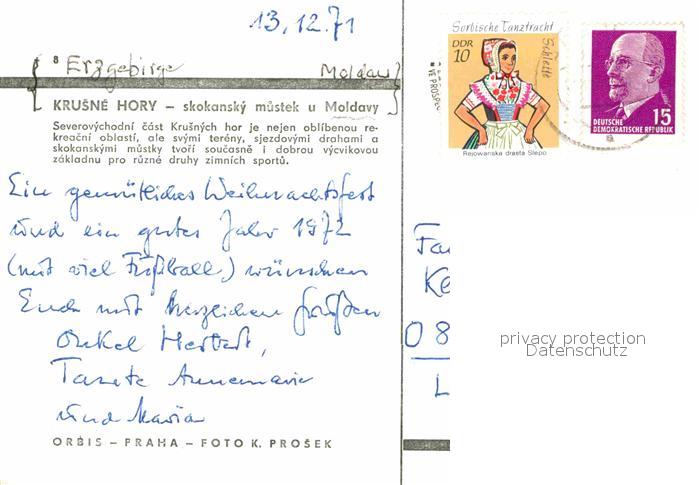 13.12.71
8 Erzgebirge Moldau
KRUŠNÉ HORY – skokanský můstek u Moldavy
Severovýchodní část Krušných hor je nejen oblíbenou re-
kreační oblastí, ale svými terény, sjezdovými drahami a
skokanskými můstky tvoří současně i dobrou výcvikovou
základnu pro různé druhy zimních sportů.
Ein gemütliches Weihnachtsfest
und ein gutes Jahr 1972
(mit viel Fußball) wünschen
Euch mit herzlichen Grüßen
Onkel Herbert,
Tante Annemarie
und Maria
ORBIS – PRAHA – FOTO K. PROŠEK
Sorbische Tanztracht
DDR
10
Schleife
Rejowanska drasta Slepo
15
DEUTSCHE
DEMOKRATISCHE REPUBLIK
Fa
Ke
08
L
privacy protection
Datenschutz